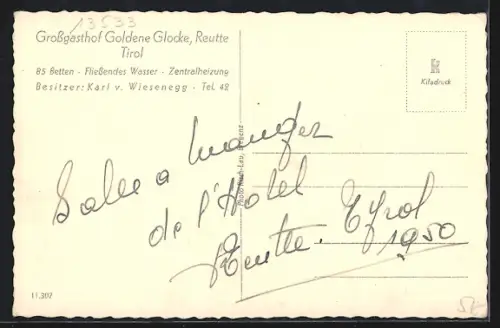 13533
Großgasthof Goldene Glocke, Reutte
Tirol
85 Betten - Fließendes Wasser - Zentralheizung
Besitzer: Karl v. Wiesenegg - Tel. 42
Kifadruck
Salle a manger
de l'Hotel
Reutte. Tyrol
1950
11.302